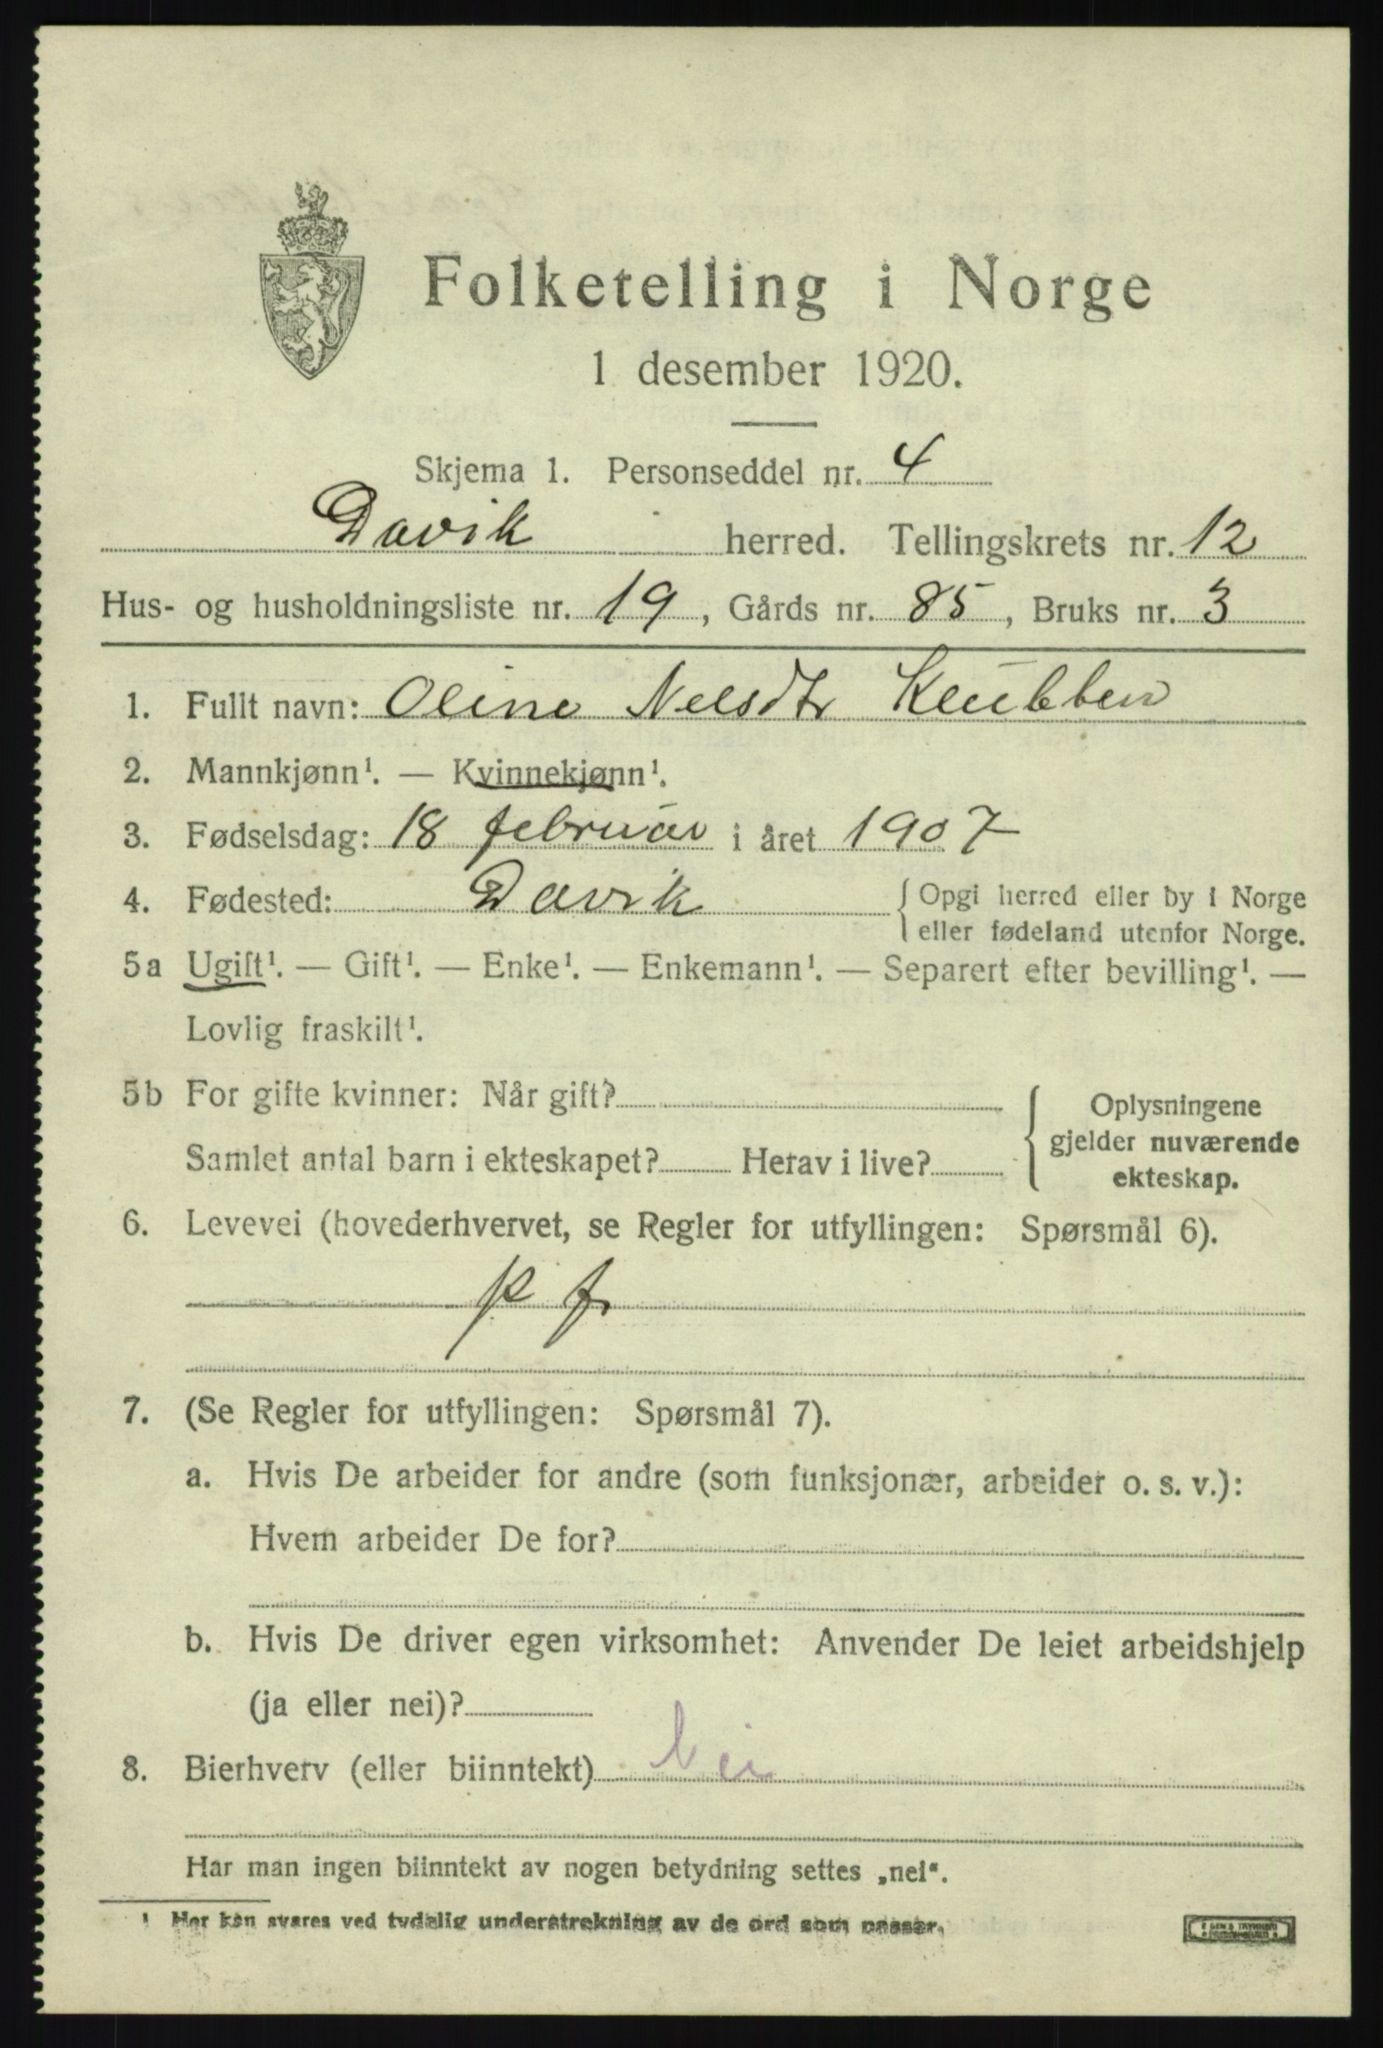 Folketelling i Norge
1 desember 1920.
Skjema 1. Personseddel nr. 4
Davik herred. Tellingskrets nr. 12
Hus- og husholdningsliste nr. 19, Gårds nr. 85, Bruks nr. 3
1. Fullt navn: Oline Nelsdtr Klubben
2. Mannkjønn¹. — Kvinnekjønn¹.
3. Fødselsdag: 18 februar i året 1907
4. Fødested: Davik { Opgi herred eller by i Norge
eller fødeland utenfor Norge.
5a Ugift¹. — Gift¹. — Enke¹. — Enkemann¹. — Separert efter bevilling¹. —
Lovlig fraskilt¹.
5b For gifte kvinner: Når gift?
Samlet antal barn i ekteskapet? Herav i live?
{ Oplysningene
gjelder nuværende
ekteskap.
6. Levevei (hovederhvervet, se Regler for utfyllingen: Spørsmål 6).
p f
7. (Se Regler for utfyllingen: Spørsmål 7).
a. Hvis De arbeider for andre (som funksjonær, arbeider o. s. v.):
Hvem arbeider De for?
b. Hvis De driver egen virksomhet: Anvender De leiet arbeidshjelp
(ja eller nei)?
8. Bierhverv (eller biinntekt) Nei
Har man ingen biinntekt av nogen betydning settes „nei“.
¹ Her kan svares ved tydelig understrekning av de ord som passer.